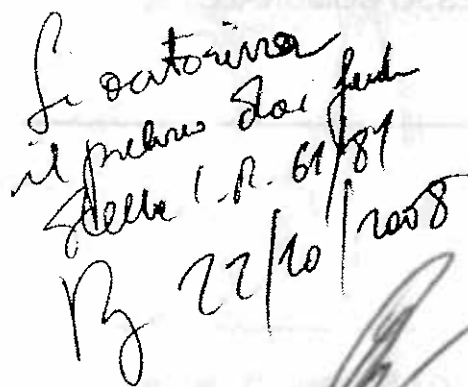 Si autorizza
il prelievo dai fondi
della L.R. 61/81
22/10/2008